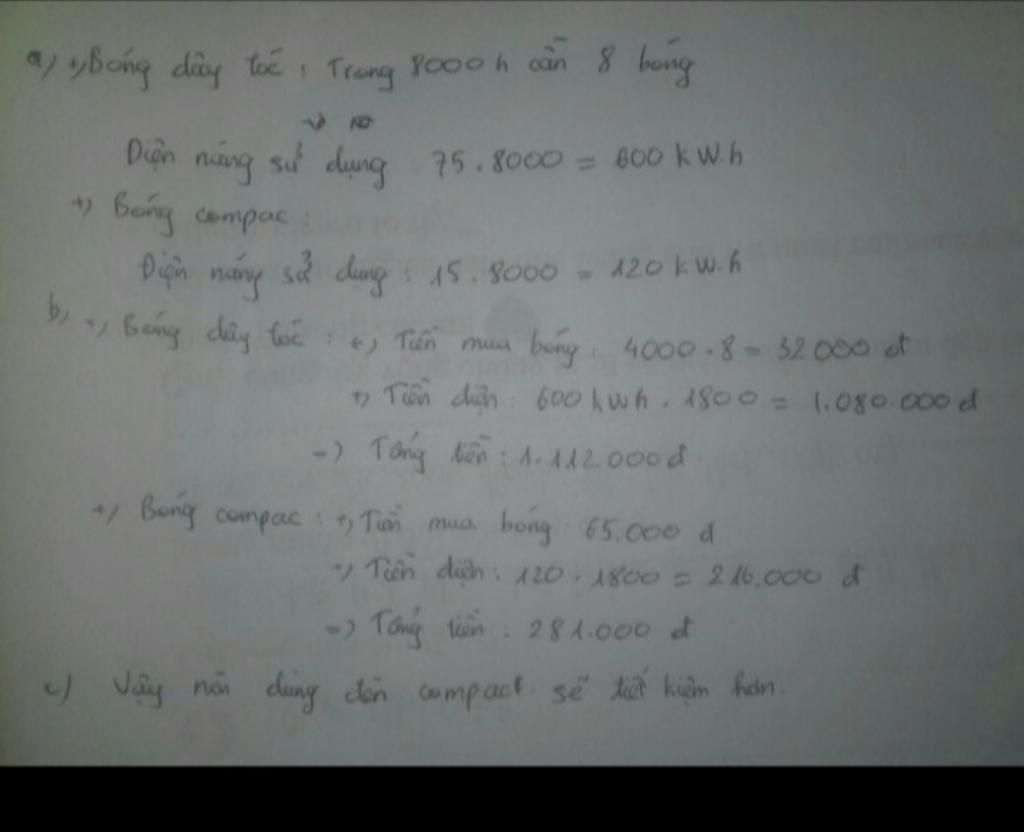 a) +) Bóng dây tóc : Trong 8000 h cần 8 bóng
Điện năng sử dụng : 75.8000 = 600 kW.h
+) Bóng compac :
Điện năng sử dụng : 15.8000 = 120 kW.h
b) +) Bóng dây tóc : +) Tiền mua bóng : 4000.8 = 32000 đ
+) Tiền điện : 600 kWh . 1800 = 1.080.000 đ
=) Tổng tiền : 1.112.000 đ
+) Bóng compac : +) Tiền mua bóng 65.000 đ
+) Tiền điện : 120 . 1800 = 216.000 đ
=) Tổng tiền : 281.000 đ
c) Vậy nên dùng đèn compact sẽ tiết kiệm hơn.